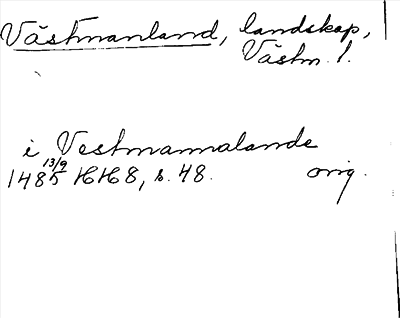 Västmanland, landskap,
Västm. l.
i Vestmannalande
1485 13/9 HH8, s. 48. orig.